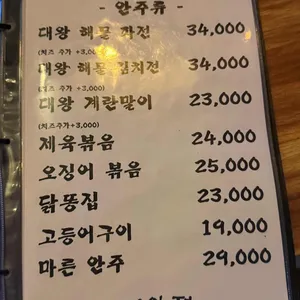 - 안주류 -
대왕 해물 파전 34,000
(치즈 추가 +3,000)
대왕 해물 김치전 34,000
(치즈 추가 +3,000)
대왕 계란말이 23,000
(치즈추가+3,000)
제육볶음 24,000
오징어 볶음 25,000
닭똥집 23,000
고등어구이 19,000
마른 안주 29,000